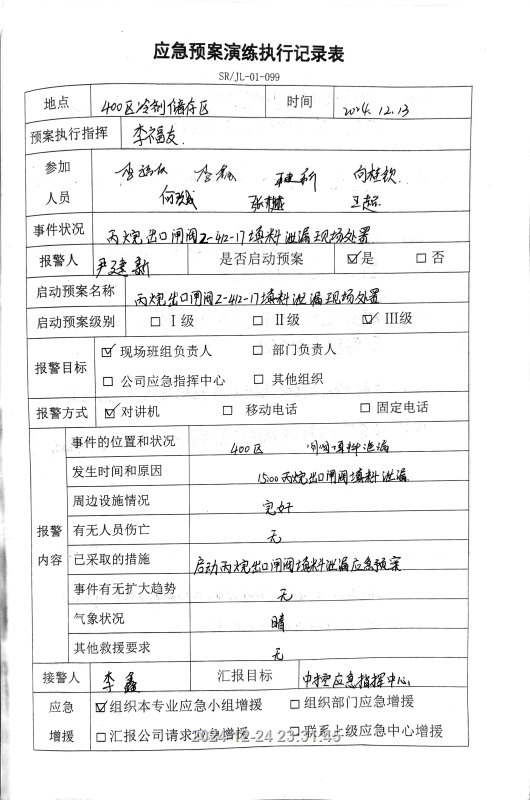 应急预案演练执行记录表
SR/JL-01-099
地点 400区冷剂储存区 时间 2024.12.13
预案执行指挥 李福友
参加人员 李福友 李鑫 向桂钦
王超
事件状况 丙烷出口闸阀2-412-17填料泄漏现场处置
报警人 尹建新 是否启动预案 ☑是 □否
启动预案名称 丙烷出口闸阀2-412-17填料泄漏现场处置
启动预案级别 □Ⅰ级 □Ⅱ级 ☑Ⅲ级
报警目标 ☑现场班组负责人 □部门负责人
□公司应急指挥中心 □其他组织
报警方式 ☑对讲机 □移动电话 □固定电话
报警内容 事件的位置和状况 400区 闸阀填料泄漏
发生时间和原因 15:00丙烷出口闸阀填料泄漏
周边设施情况 完好
有无人员伤亡 无
已采取的措施 启动丙烷出口闸阀填料泄漏应急预案
事件有无扩大趋势 无
气象状况 晴
其他救援要求 无
接警人 李鑫 汇报目标 中控应急指挥中心
应急增援 ☑组织本专业应急小组增援 □组织部门应急增援
□汇报公司请求应急增援 □联系上级应急中心增援
2024-12-24 23:31:45